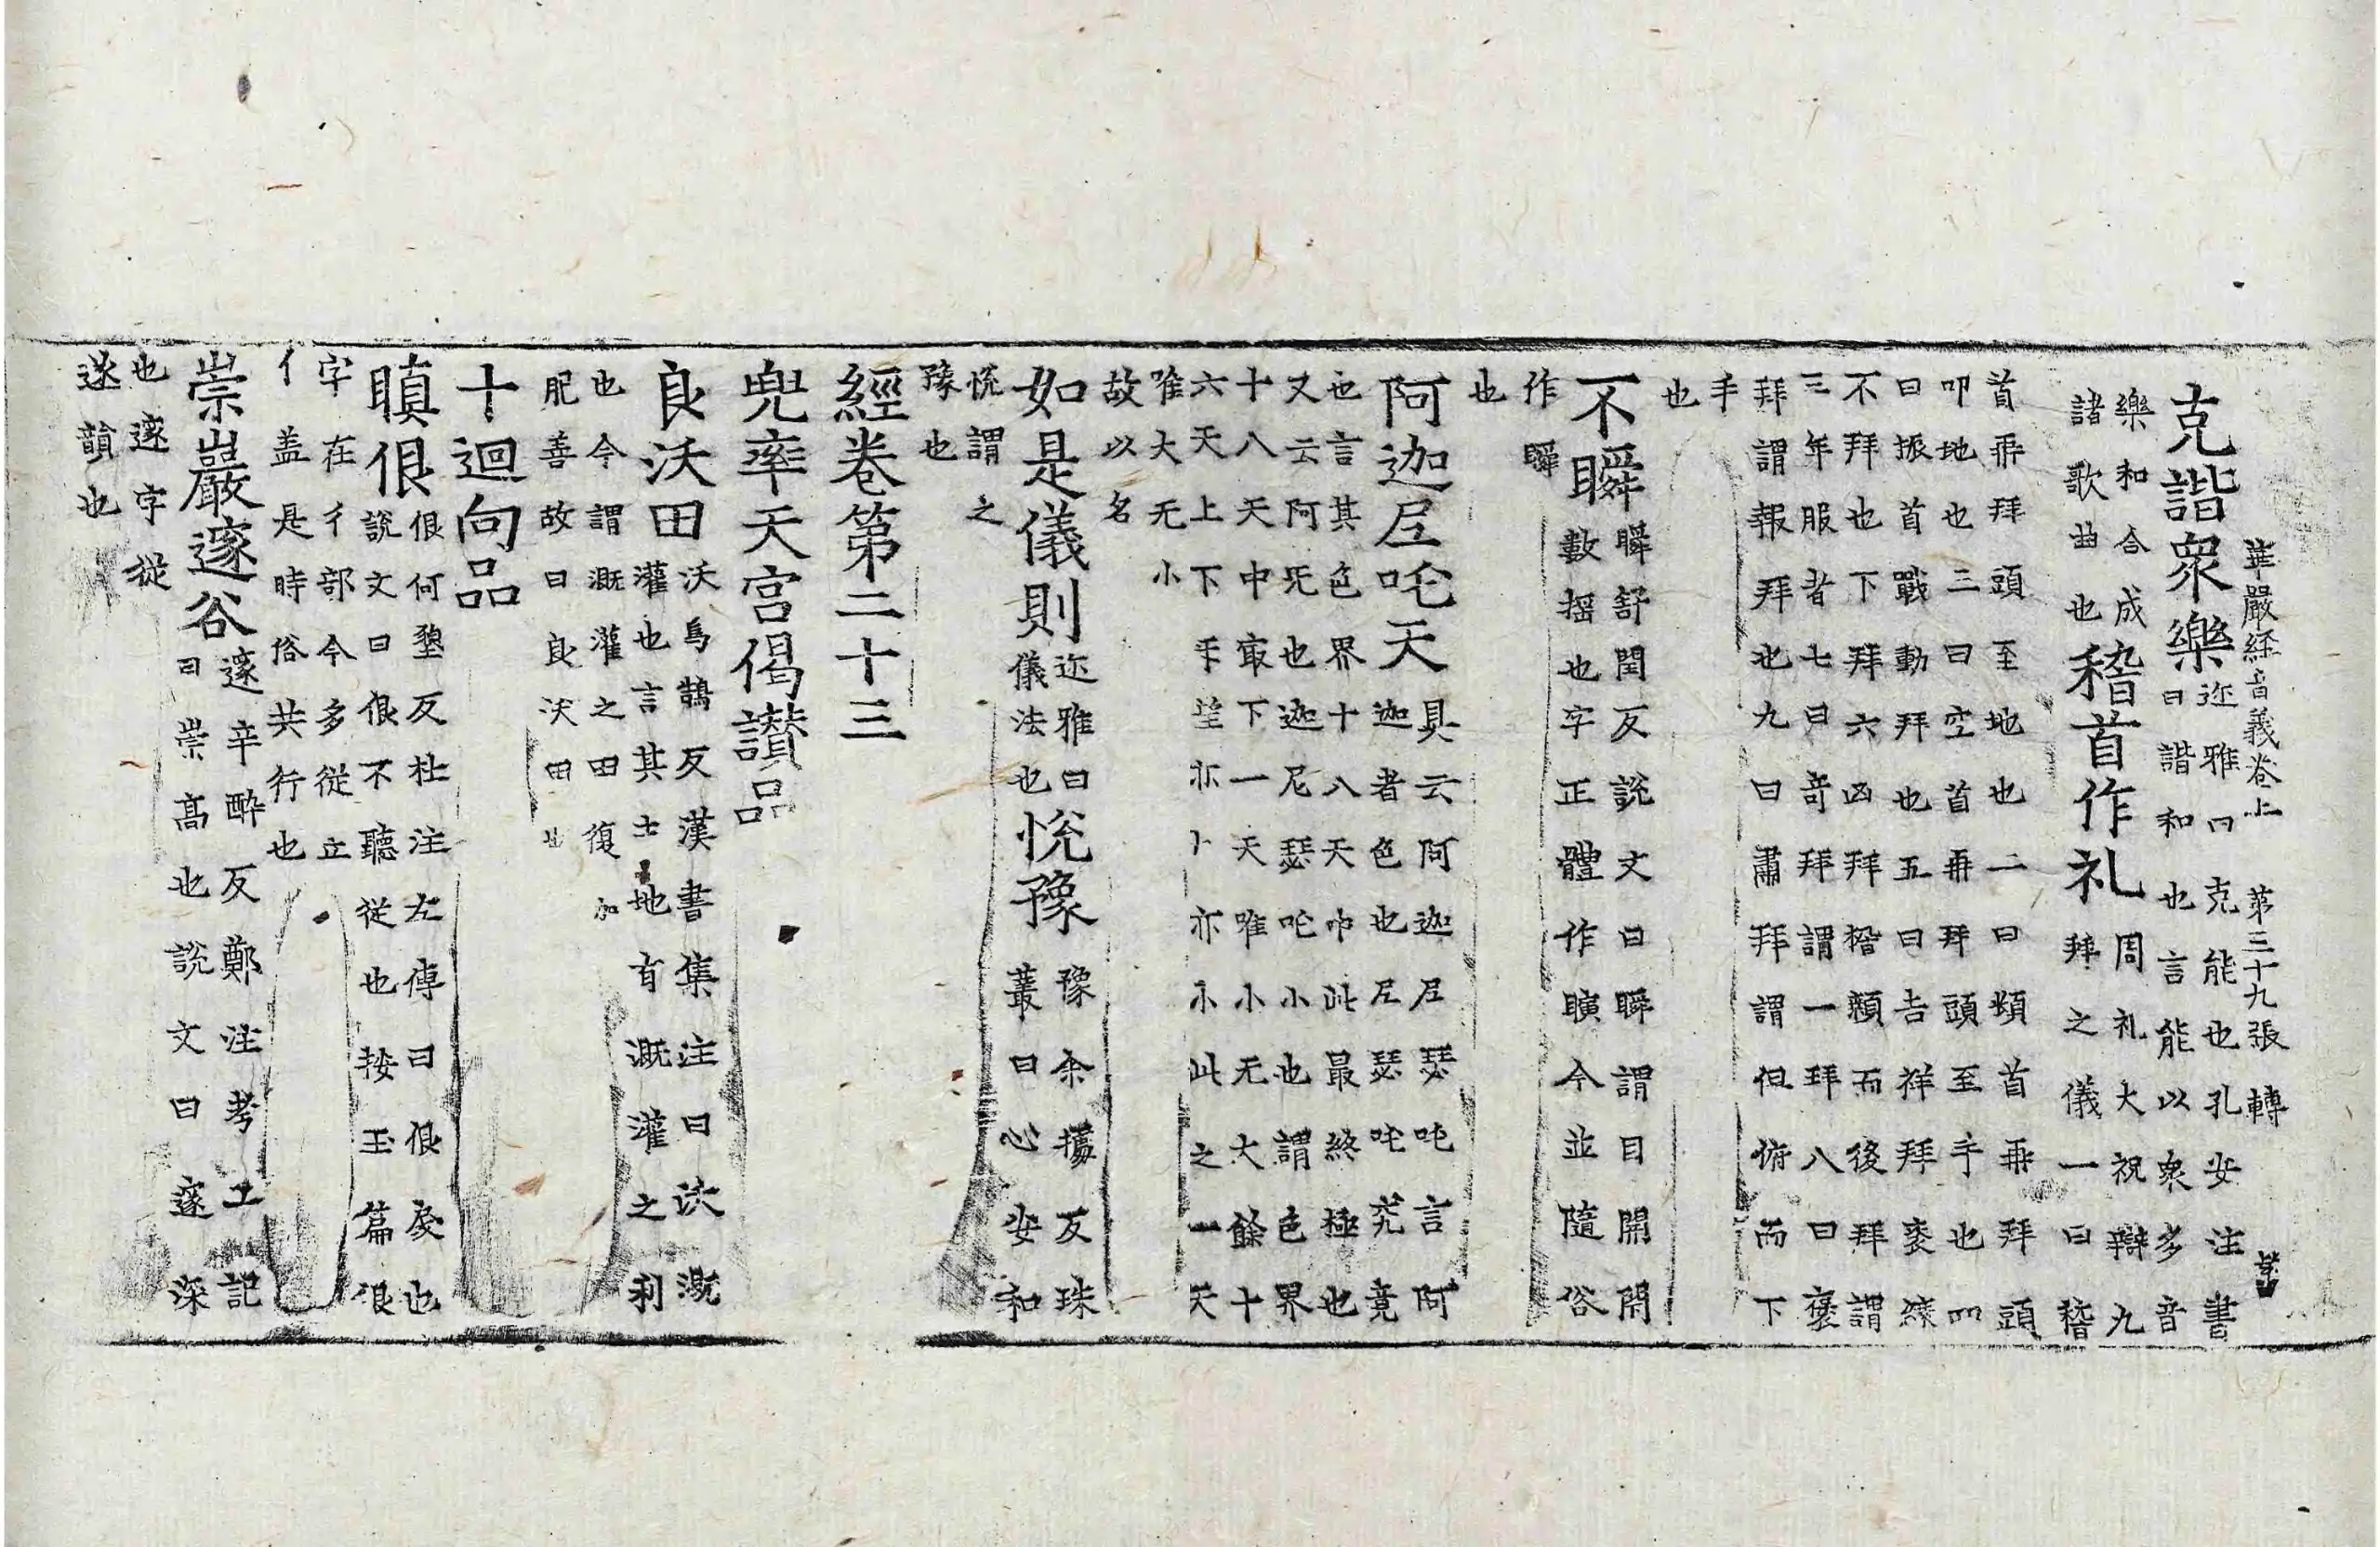 華嚴経音義卷上 第三十九張 轉
克諧衆樂迩雅曰克能也孔安注書
曰諧和也言能以衆多音
樂和合成
諸歌曲也
稽首作礼周礼大祝辯九
拜之儀一曰稽
首乖拜頭至地也二曰頓首乖拜頭
叩地也三曰空首乖拜頭至手也四
曰振首戰動拜也五曰吉祥拜衮縗
不拜也下拜六凶拜稽顙而後拜謂
三年服者七曰奇拜謂一拜八曰褒
拜謂報拜也九曰肅拜謂但俯而下
手
也
不瞬瞬舒閏反說文曰瞬謂目開閇
數摇也字正體作瞚今並隨俗
作瞬
也
阿迦𡰱吒天具云阿迦𡰱瑟吒言阿
迦者色也𡰱瑟吒究竟
也言其色界十八天中此最終極也
又云阿旡也迦尼瑟吒小也謂色界
十八天中㝡下一天唯小无大餘十
六天上下㸦望亦大亦小此之一天
唯大无小
故以名
如是儀則迩雅曰
儀法也
悦豫豫余據反珠
叢曰心安和
悦謂之
豫也
經卷第二十三
兜率天宫偈讃品
良沃田沃烏鵠反漢書集注曰沃溉
灌也言其土地有溉灌之利
也今謂溉灌之田復加
肥善故曰良沃田也
十迴向品
瞋佷佷何墾反杜注左傳曰佷戾也
說文曰佷不聽從也按玉篇佷
字在彳部今多從立
亻盖是時俗共行也
崇巖邃谷邃辛醉反鄭注考工記
曰崇髙也說文曰邃深
也邃字從
遂韻也